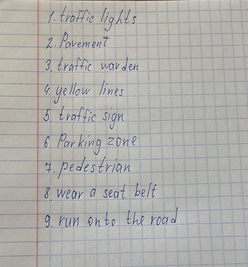 1. traffic lights
2. Pavement
3. traffic warden
4. yellow lines
5 traffic sign
6. Parking zone
7. pedestrian
8, wear a seat belt
9. run onto the road